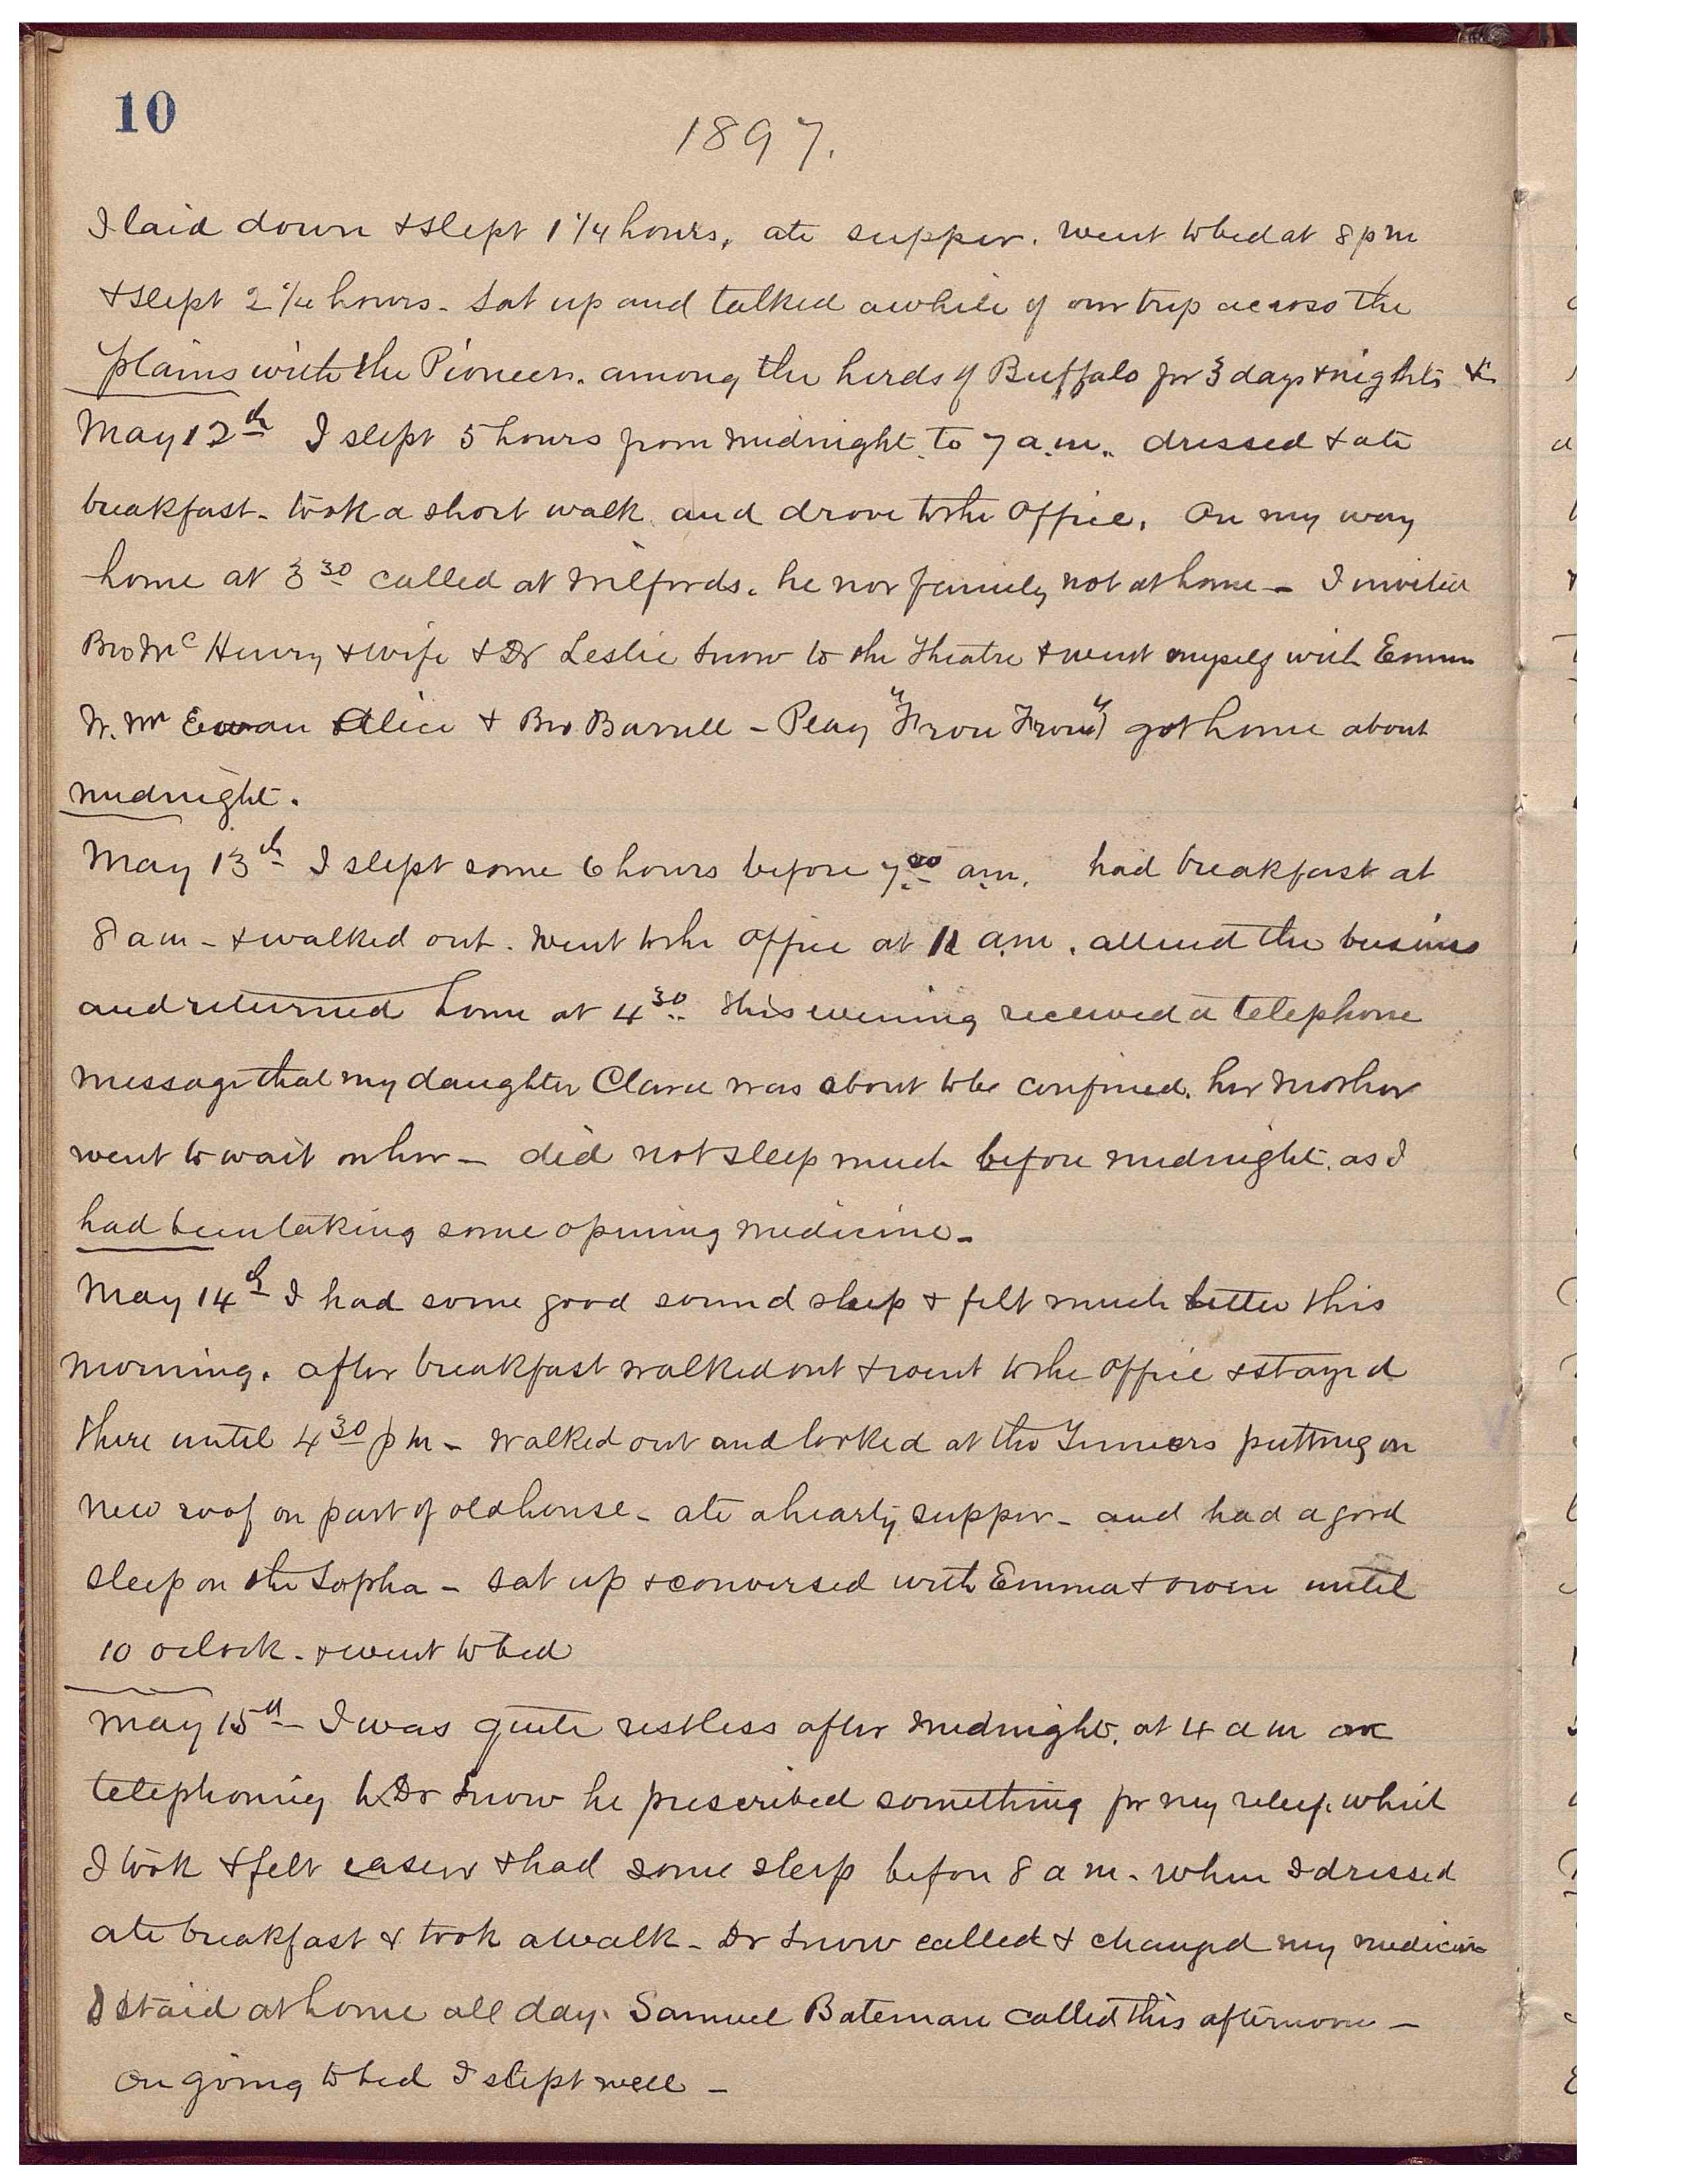 10
1897.
I laid down & slept 1 1/4 hours, ate supper. went to bed at 8 pm
& slept 2 1/4 hours - Sat up and talked awhile of our trip across the
plains with the Pioneers. among the herds of Buffalo for 3 days & nights &c
May 12th I slept 5 hours from midnight to 7 a.m. dressed & ate
breakfast - took a short walk and drove to the office. On my way
home at 3 30 called at Wilfords. he nor family not at home - I invited
Bro Mc Henry & wife & Dr Leslie Snow to the Theatre & went myself with Emma
W. Mc Ewan Alice & Bro Burrell - Play "Frou Frou") got home about
midnight.
May 13th I slept some 6 hours before 7 a.m. had breakfast at
8 a m - & walked out. Went to the office at a.m. attend the business
and returned home at 4 30. this evening received a telephone
message that my daughter Clara was about to be confined. her mother
went to wait on her - did not sleep much before midnight. as I
had been taking some opening medicine -
May 14th I had some good sound sleep & felt much better this
morning. after breakfast walked out & went to the office & stayed
there until 4 30 p m - walked out and looked at the Tinners putting on
new roof on part of old house - ate a hearty supper - and had a good
sleep on the Sopha - sat up & conversed with Emma & Owen until
10 oclock - & went to bed
May 15th - I was quite restless after midnight. at 4 a m on
telephoning to Dr Snow he prescribed something for my relief. which
I took & felt easier & had some sleep before 8 a m. when I dressed
ate breakfast & took a walk - Dr Snow called & changed my medicine
I staid at home all day. Samuel Bateman called this afternoon -
on going to bed I slept well -